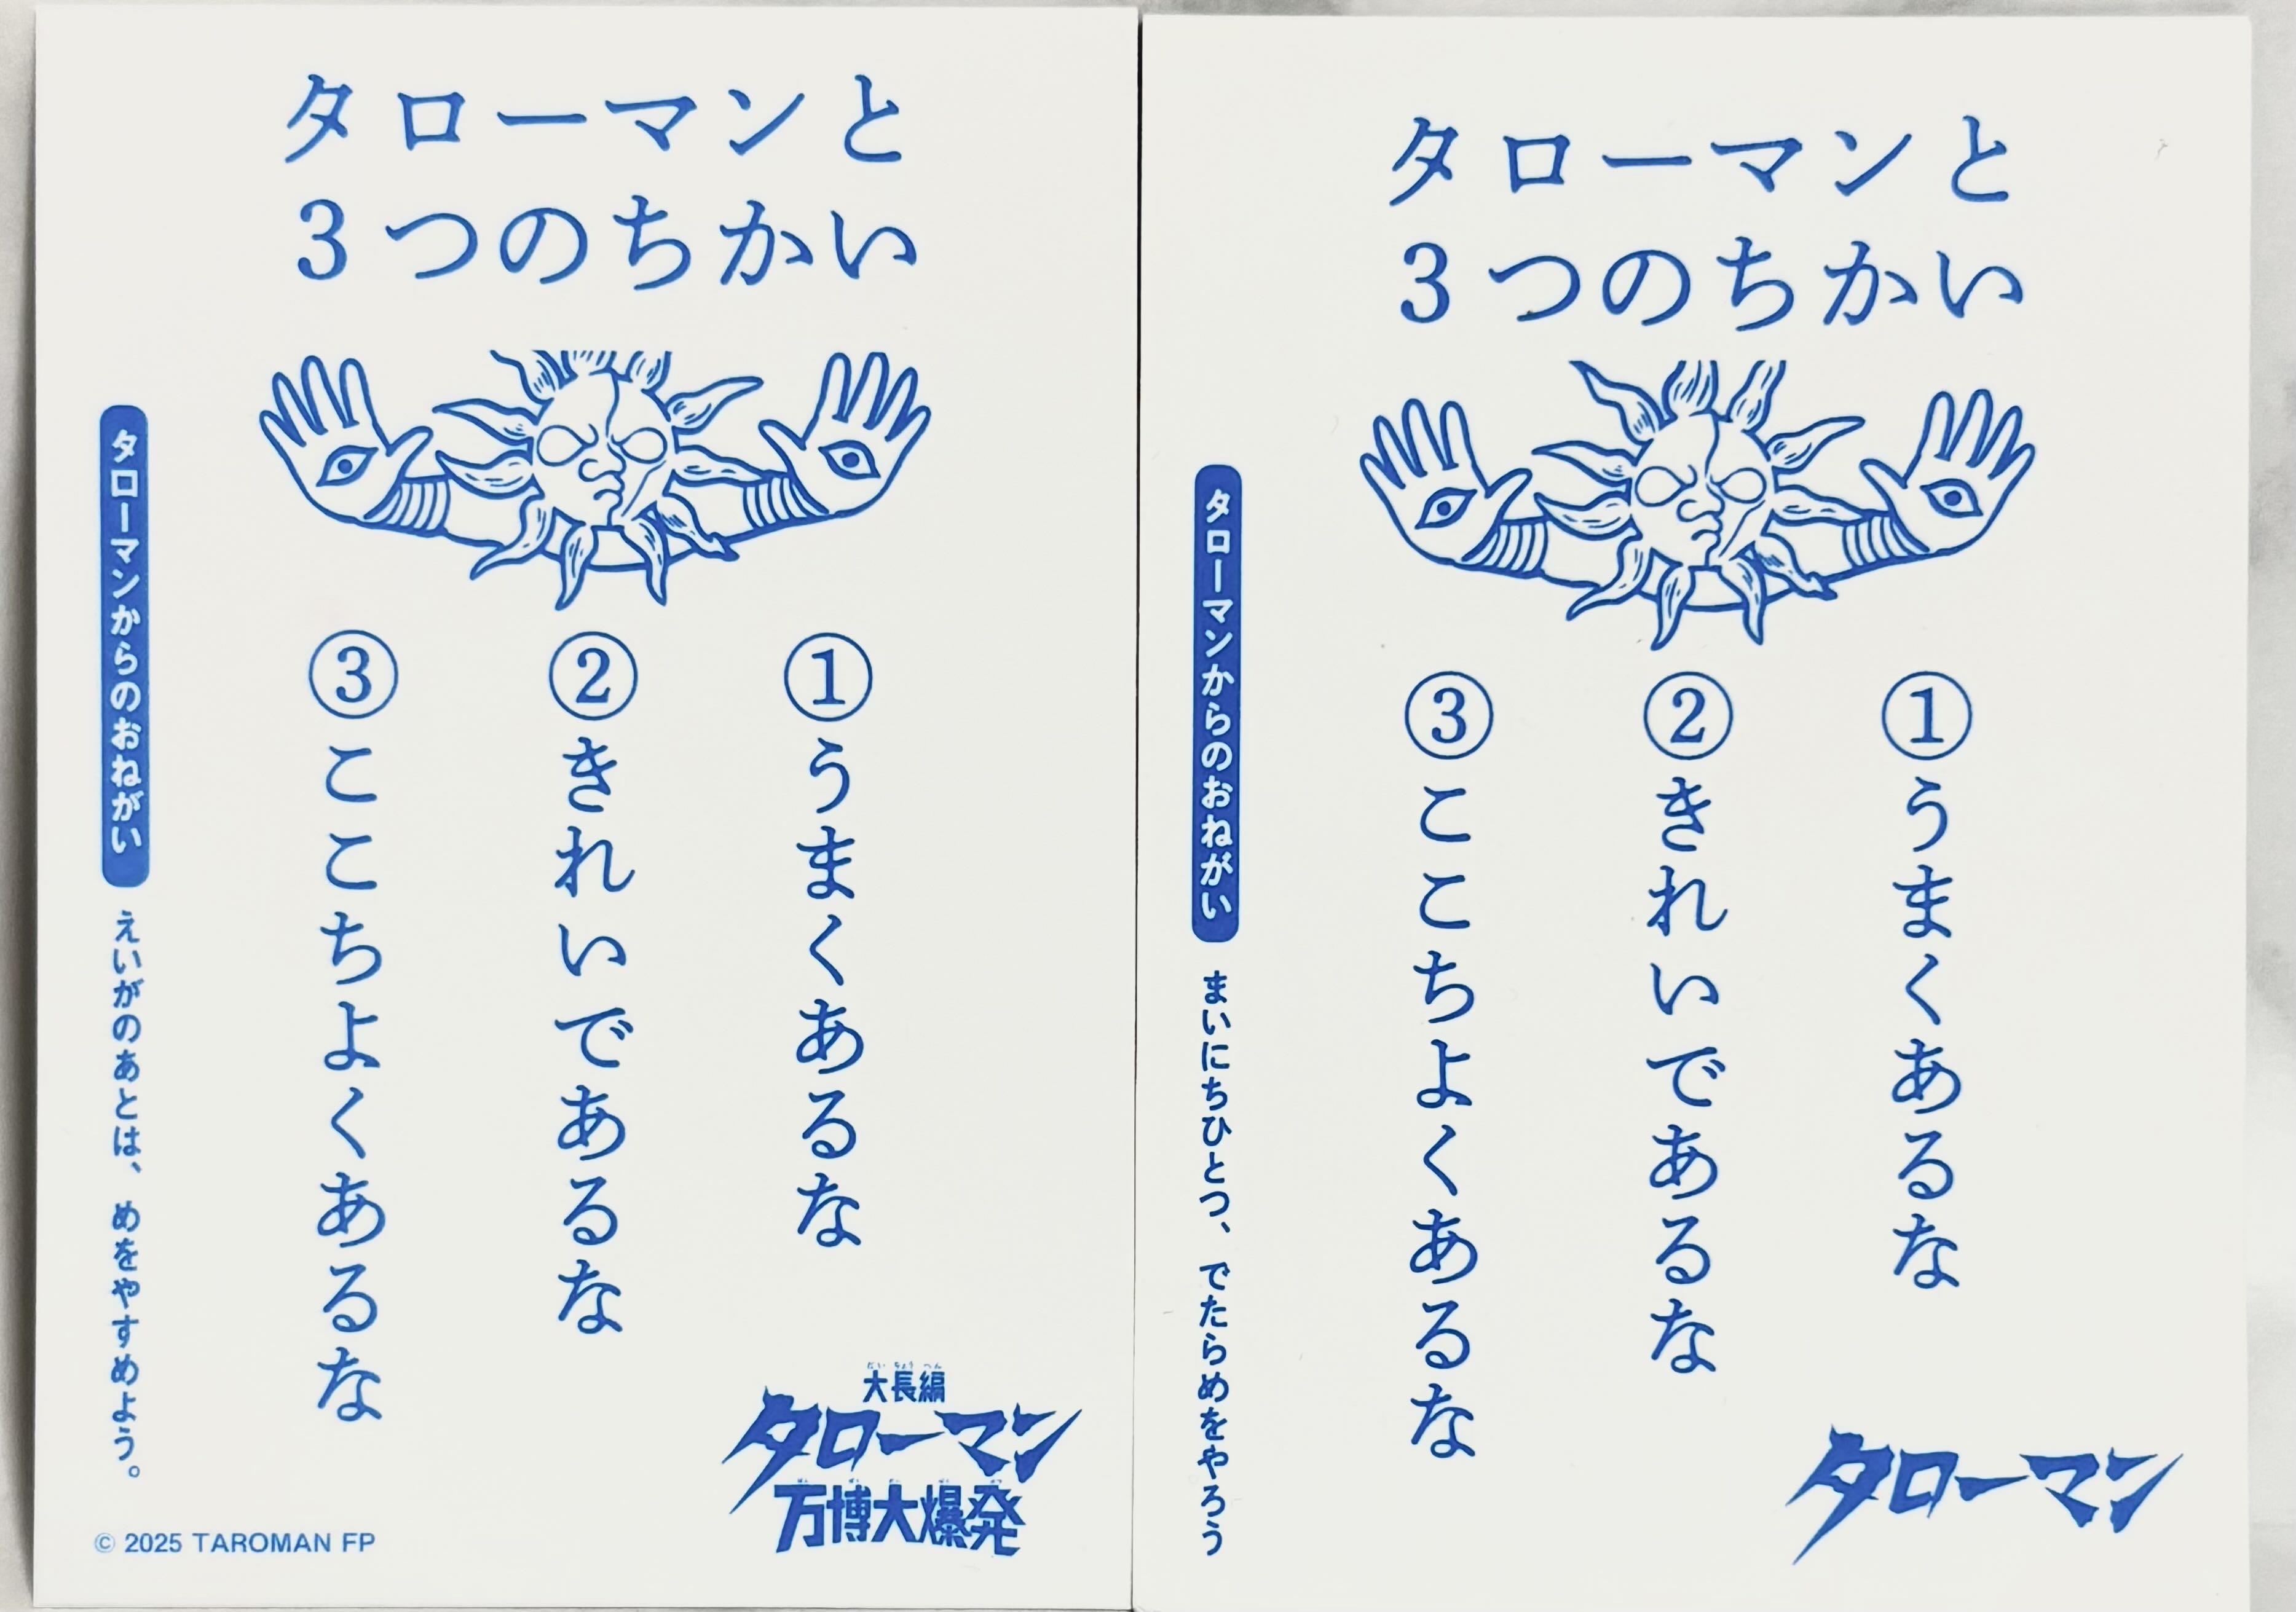 タローマンと
3つのちかい
①うまくあるな
②きれいであるな
③ここちよくあるな
タローマンからのおねがい
えいがのあとは、めをやすめよう。
だいちょうへん
大長編
タローマン
ばんぱくだいばくはつ
万博大爆発
© 2025 TAROMAN FP
タローマンと
3つのちかい
①うまくあるな
②きれいであるな
③ここちよくあるな
タローマンからのおねがい
まいにちひとつ、でたらめをやろう
タローマン